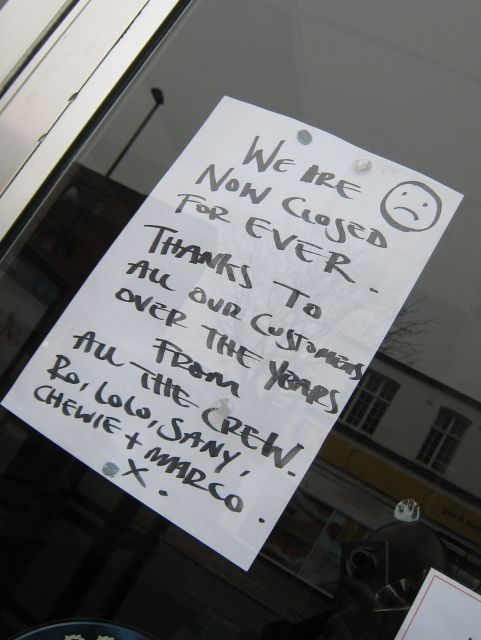 WE ARE
NOW CLOSED
FOR EVER.
THANKS TO
ALL OUR CUSTOMERS
OVER THE YEARS
FROM
ALL THE CREW.
RO, LOLO, SANY,
CHEWIE + MARCO.
X.